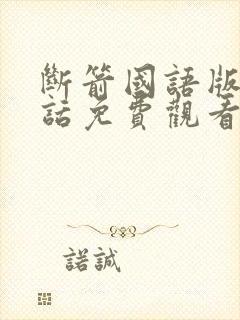 斷箭國語版
話免費觀看
諾誠